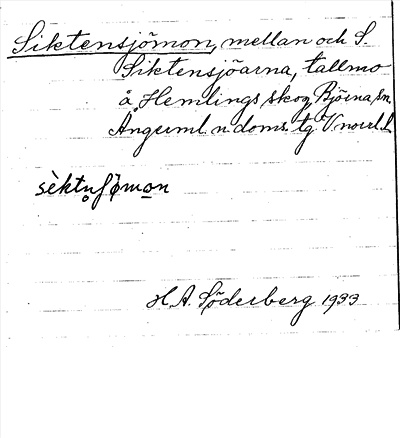 Siktensjömon, mellan och S.
Siktensjöarna, tallmo
å Hemlings skog, Björna sn
Ångerml. n. doms. tg V. norrl. l.
sèktn̥ʃömo̲n
H. A. Söderberg 1933